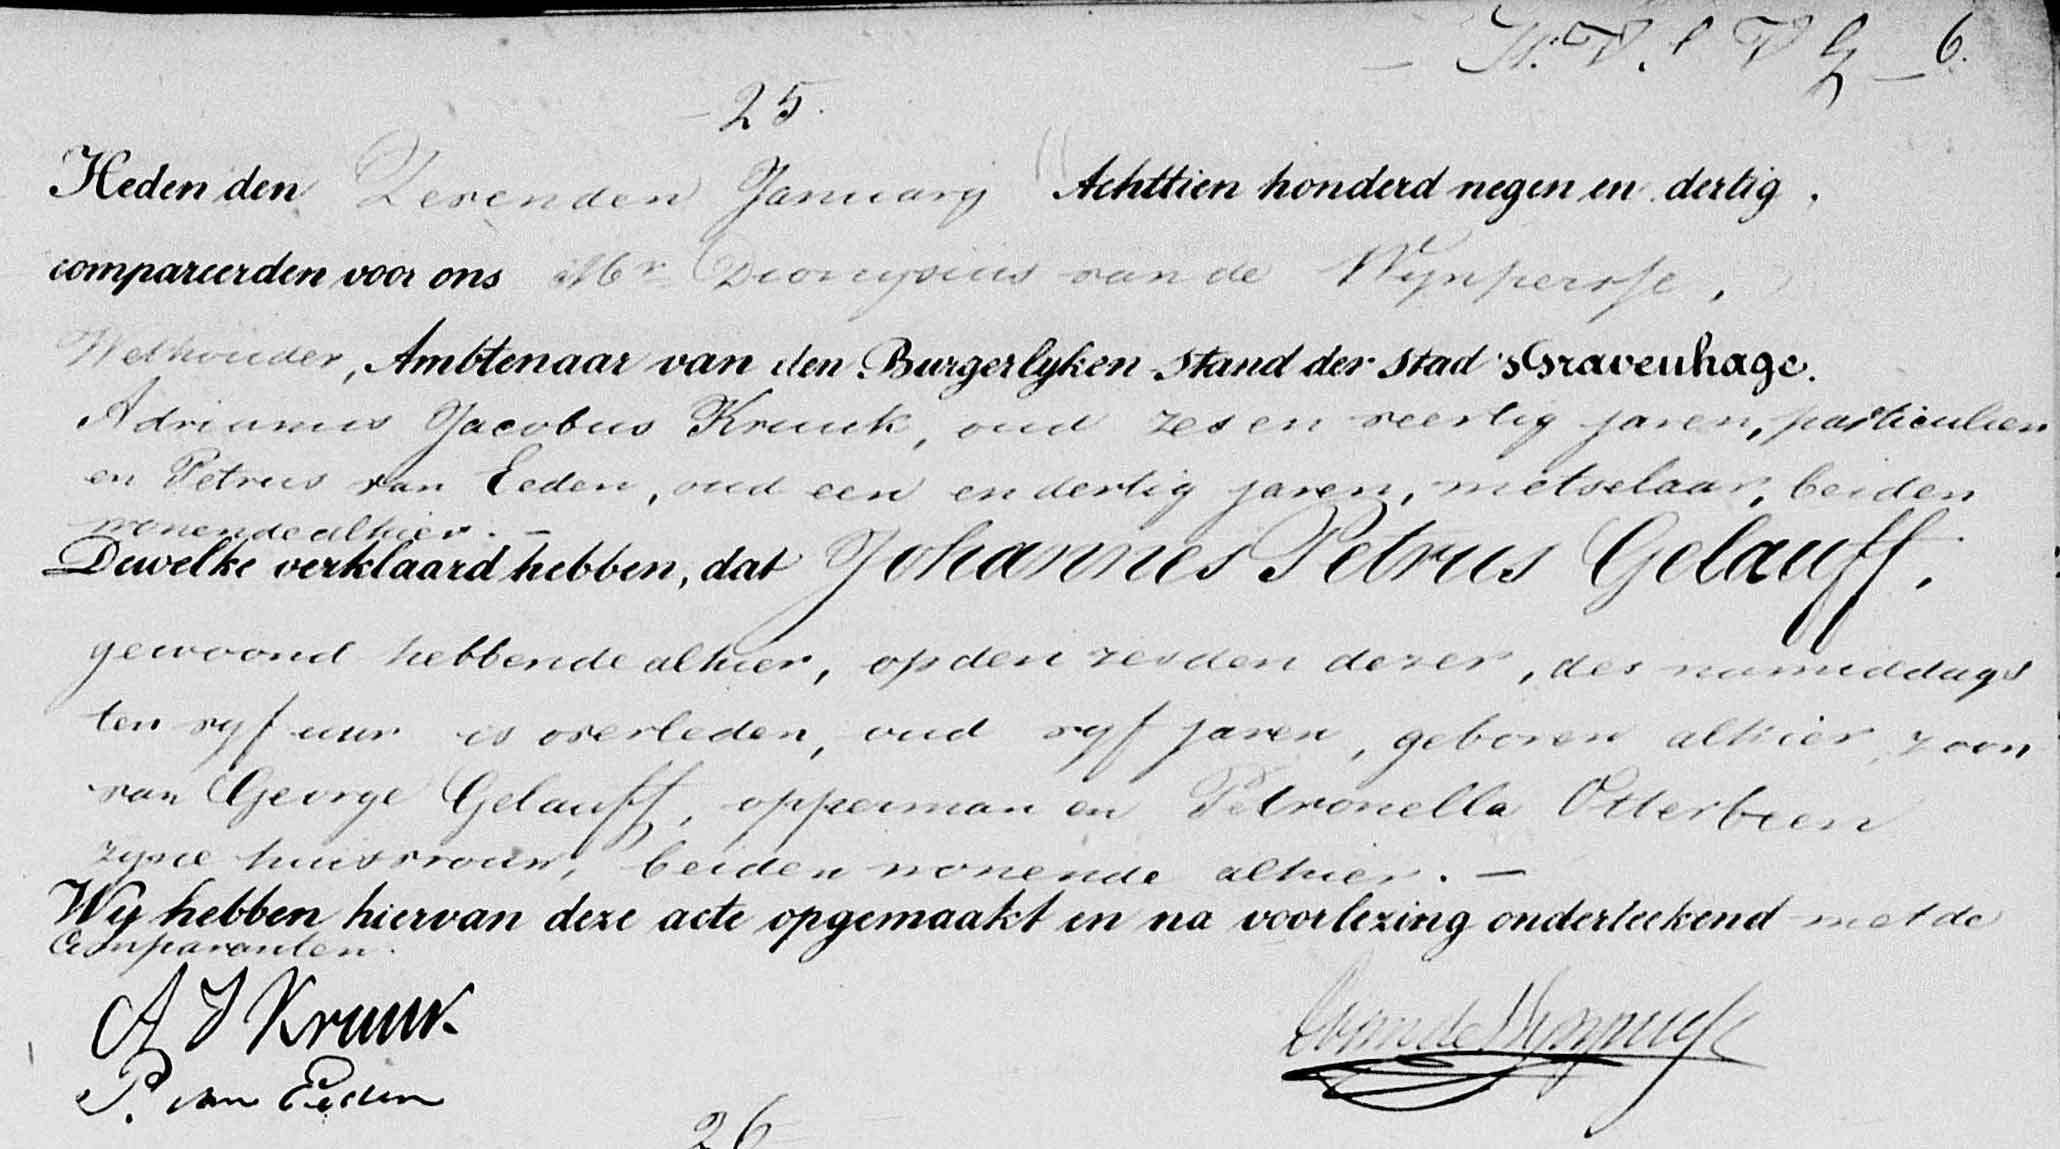 6.
25.
Heden den Zevenden January Achttien honderd negen en dertig,
compareerden voor ons Mr Dionysius van de Wynpersse,
Wethouder, Ambtenaar van den Burgerlyken Stand der Stad 'sGravenhage.
Adrianus Jacobus Kruuk, oud zes en veertig jaren, particulier
en Petrus van Eeden, oud een en dertig jaren, metselaar, beiden
wonende alhier. -
Dewelke verklaard hebben, dat Johannes Petrus Gelauff,
gewoond hebbende alhier, op den zesden dezer, des namiddags
ten vyf uur is overleden, oud vyf jaren, geboren alhier, zoon
van George Gelauff, opperman en Petronella Otterbeen
zyne huisvrouw, beiden wonende alhier. -
Wy hebben hiervan deze acte opgemaakt en na voorlezing onderteekend met de
Comparanten.
A J Kruuk
P. van Eeden
26